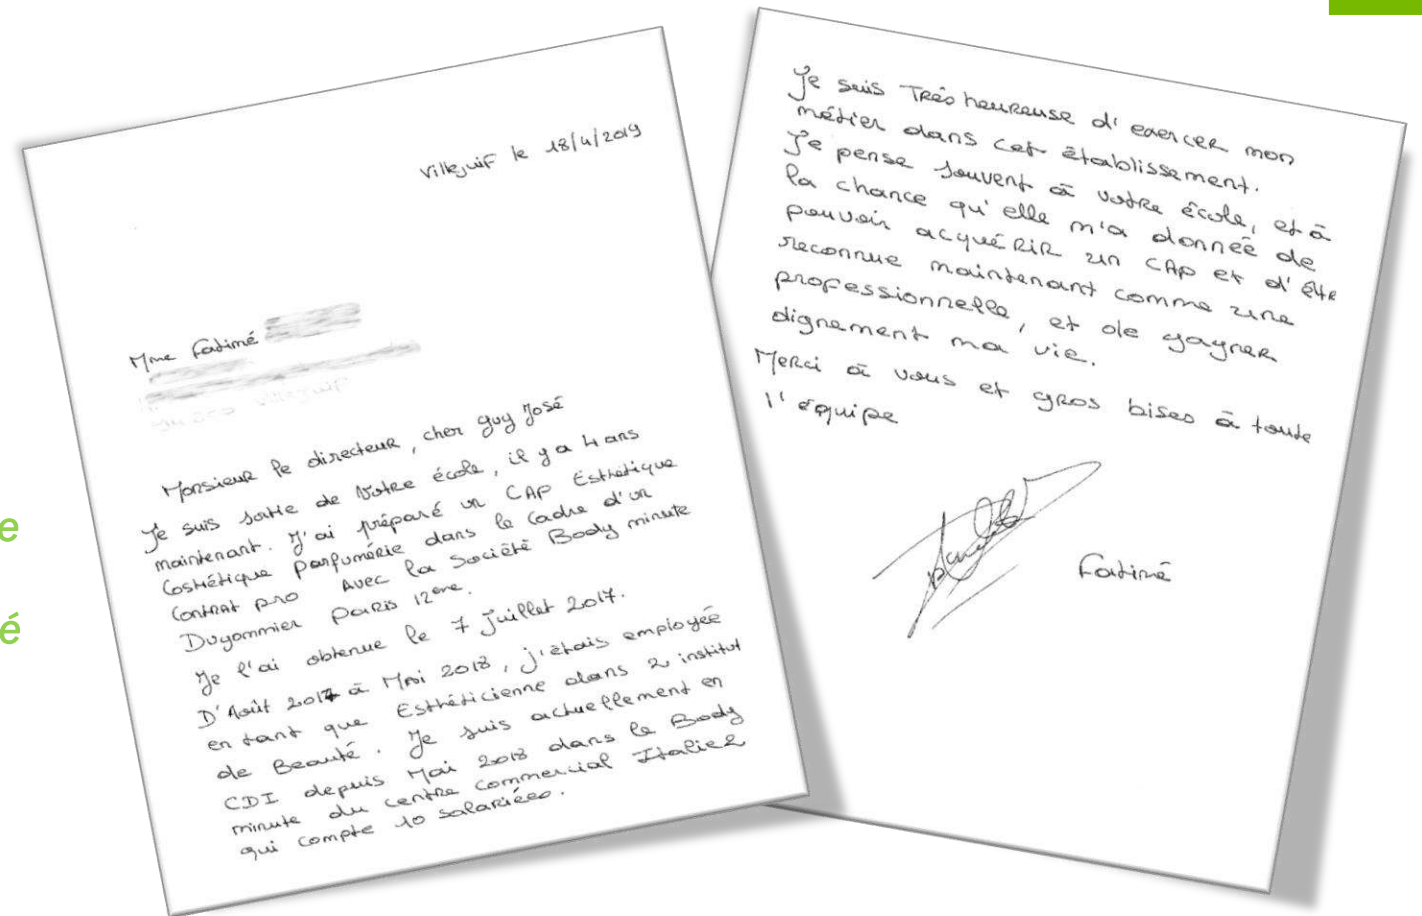 Villejuif le 18/4/2019
Mme Fatimé
Monsieur le directeur, cher Guy José
Je suis sortie de Votre école, il y a 4 ans
maintenant. J'ai préparé un CAP Esthétique
Cosmétique parfumérie dans le Cadre d'un
Contrat pro Avec la Société Body minute
Dugommier Paris 12eme.
Je l'ai obtenue le 7 Juillet 2017.
D'Août 2017 à Mai 2018, j'étais employée
en tant que Esthéticienne dans 2 institut
de Beauté. Je suis actuellement en
CDI depuis Mai 2018 dans le Body
minute du centre Commercial Italie2
qui compte 10 salariées.
Je suis Très heureuse d'exercer mon
métier dans cet établissement.
Je pense souvent à votre école, et à
la chance qu'elle m'a donnée de
pouvoir acquérir un CAP et d'être
reconnue maintenant comme une
professionnelle, et de gagner
dignement ma vie.
Merci à vous et gros bises à toute
l'équipe
Fatimé
e
é